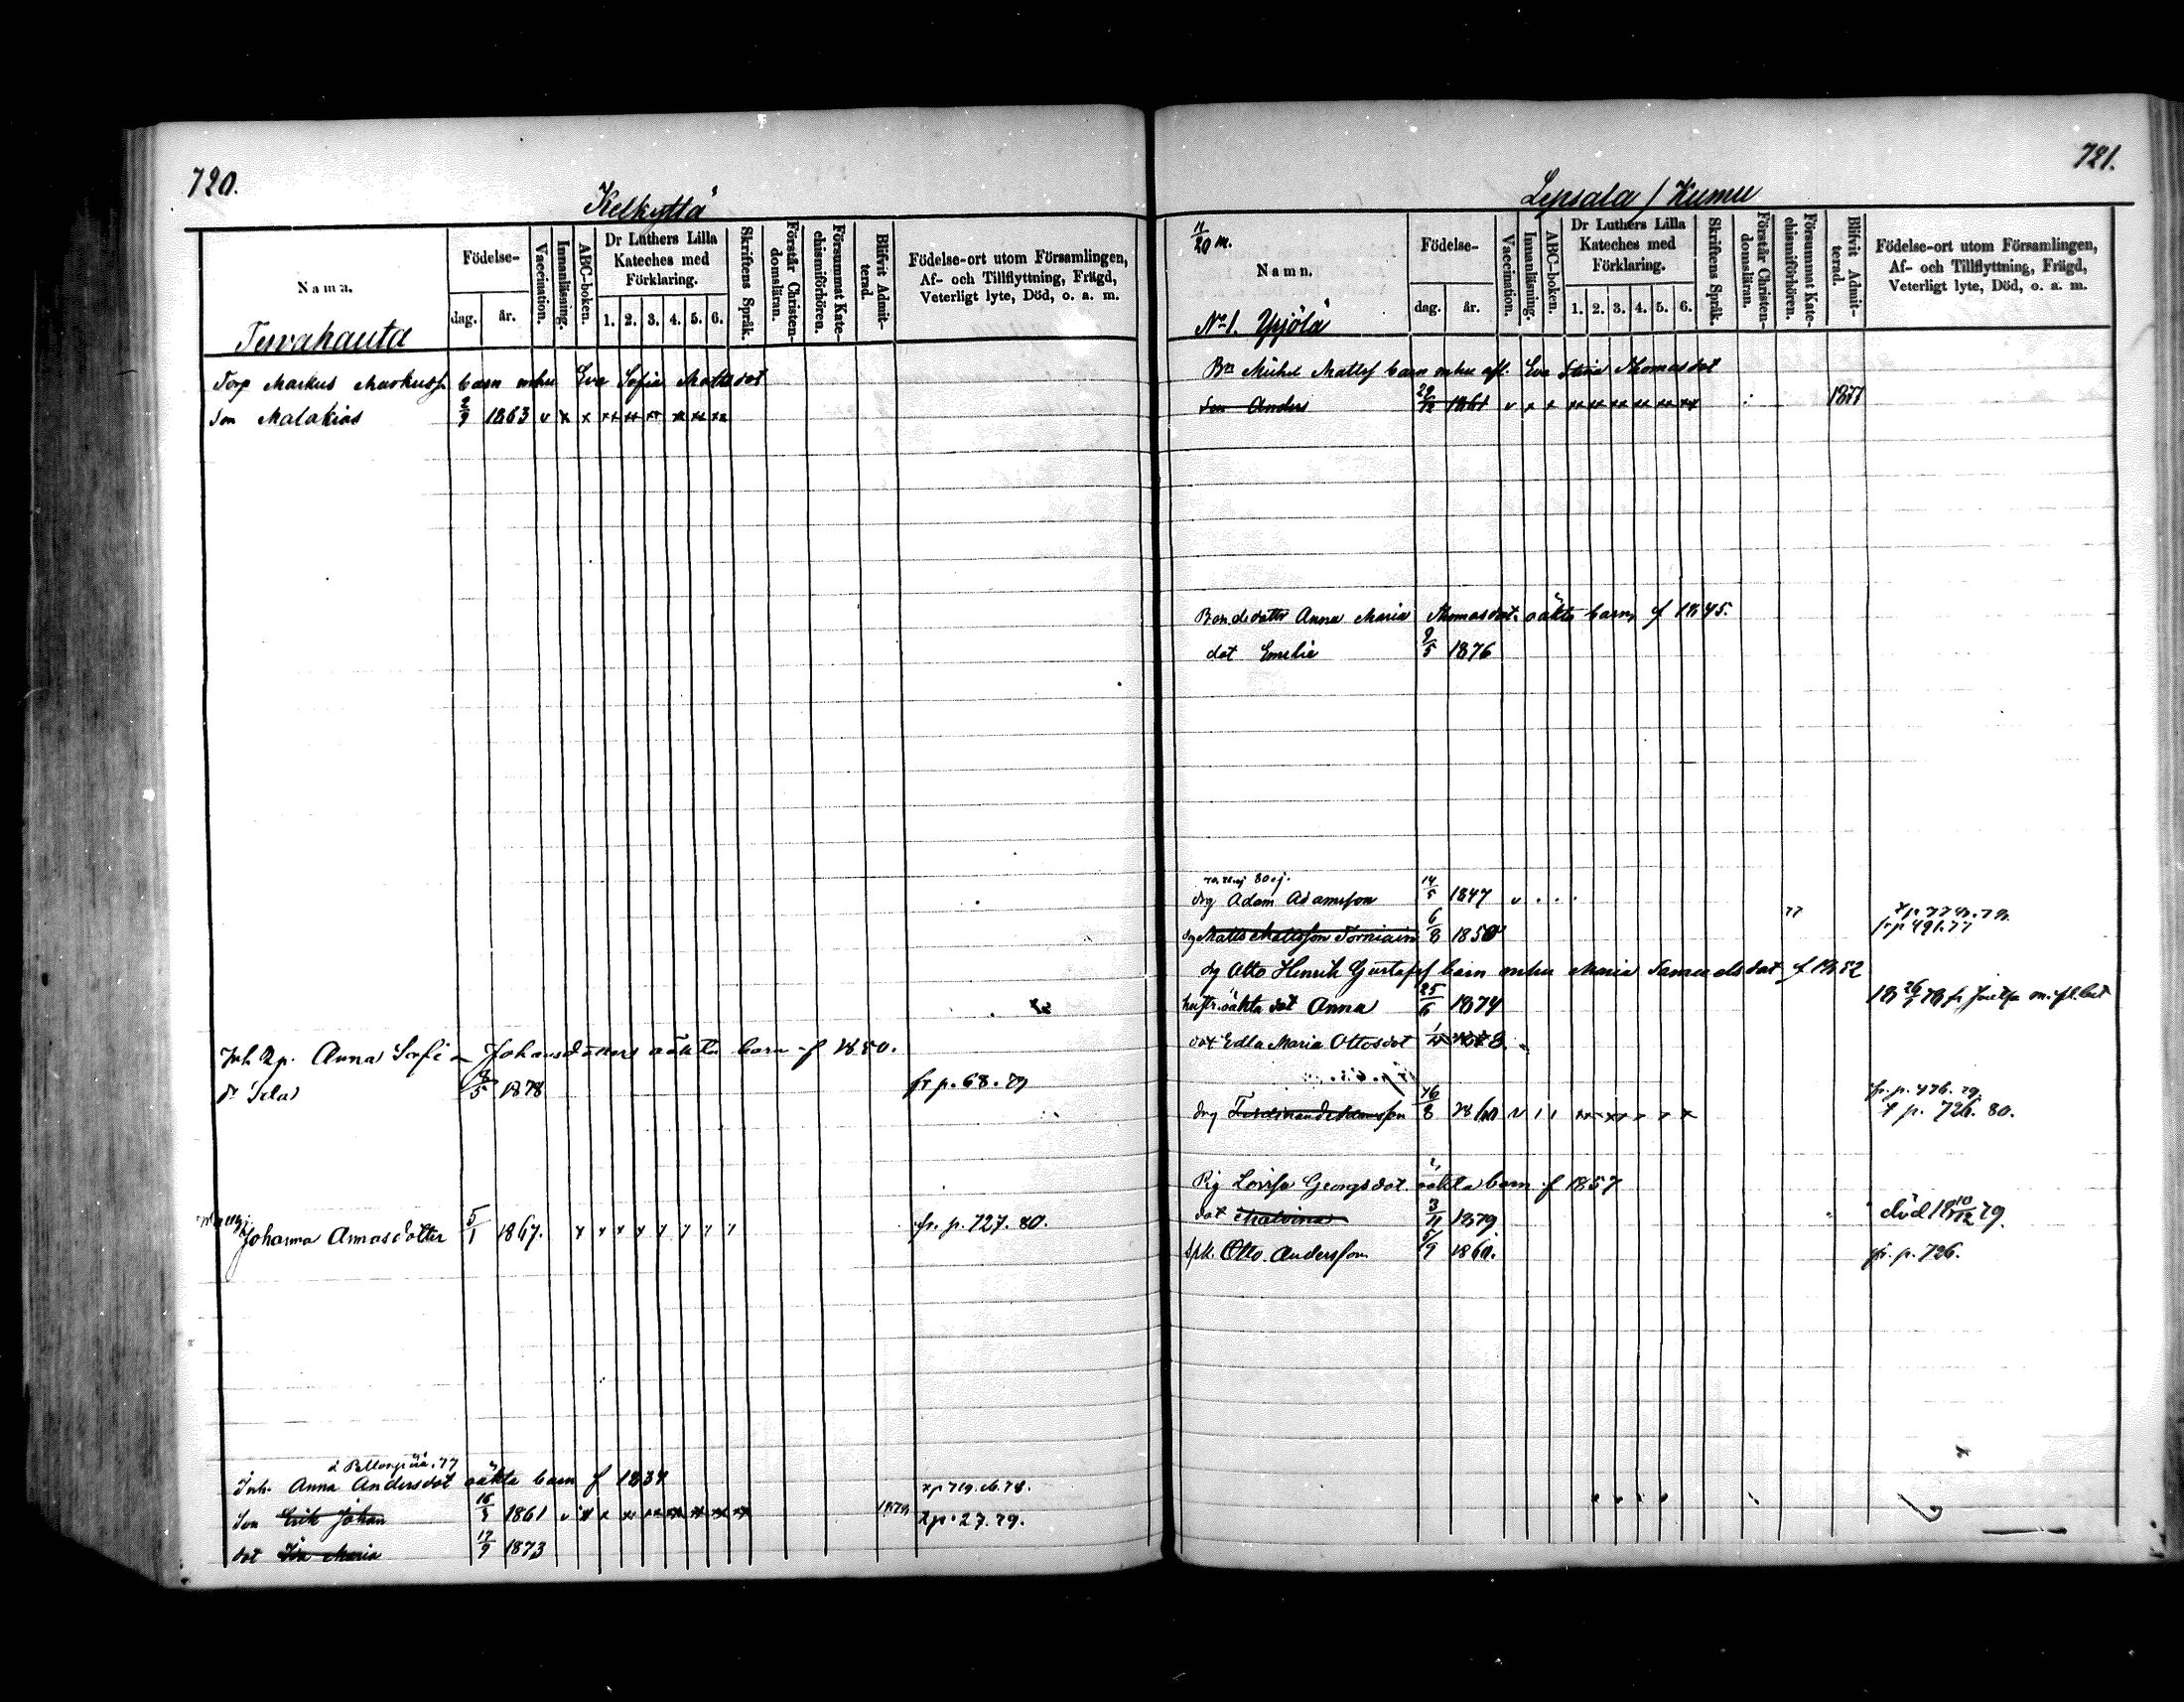 720.
Kelkyttä
Namn.
Födelse-
dag.
år.
Vaccination.
Innanläsning.
ABC-boken.
Dr Luthers Lilla Kateches med Förklaring.
1. 2. 3. 4. 5. 6.
Skriftens Språk.
Förstår Christendomsläran.
Försummat Katechismiförhören.
Blifvit Admitterad.
Födelse-ort utom Församlingen,
Af- och Tillflyttning, Frägd,
Veterligt lyte, Död, o. a. m.
Tervahauta
Torp Markus Markuss barn mhu Eva Sofia Mattsdot
Son Malakias 2/9 1863 v x x xx xx xx xx xx xx
Inh Anna Sofia Johansdotters oäkta barn f 1850.
dr Ida 8/5 1878 fr p. 68. 79
Johanna Annasdotter 5/1 1867. fr. p. 727. 80.
Inh. Anna Andersdot oäkta barn f 1834
Son Erik Johan 16/3 1861 v x x 1879 p. 27. 79.
dot Ida Maria 17/9 1873
721.
Lepsala / Kumu
11/20 m.
Namn.
Födelse-
dag.
år.
Vaccination.
Innanläsning.
ABC-boken.
Dr Luthers Lilla Kateches med Förklaring.
1. 2. 3. 4. 5. 6.
Skriftens Språk.
Förstår Christendomsläran.
Försummat Katechismiförhören.
Blifvit Admitterad.
Födelse-ort utom Församlingen,
Af- och Tillflyttning, Frägd,
Veterligt lyte, Död, o. a. m.
No 1. Ypjölä
Bn Michel Mattss barn mhu afl. Eva Stina Thomasdot
Son Anders 20/12 1861 v x x xx xx xx xx xx xx 1877
Bondedottr Anna Maria Thomasdot. oäkta barn, f 1845.
dot Emelie 9/5 1876
drg Adam Adamsson 14/5 1847 v
dg Matts Mattsson Torniain 6/8 1850 77 fr p 491. 77
dg Otto Henrik Gustafss barn mhu Maria Samuelsdot f 1852
hustr. oäkta dot Anna 25/6 1874
dot Edla Maria Ottosdot 1878.
drg Ferdinand Adamsson 16/8 1860 v fr. p. 476. 79.
p. 726. 80.
Pig Lovisa Georgsdot. oäkta barn f 1857
dot Malvina 3/11 1879 död 18 10/12 79.
Otto Andersson 5/9 1860. fr. p. 726.